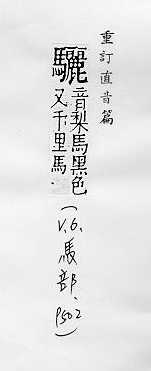 重訂直音篇
驪音梨馬黑色
又千里馬.
(V.6.
馬部.
P502)